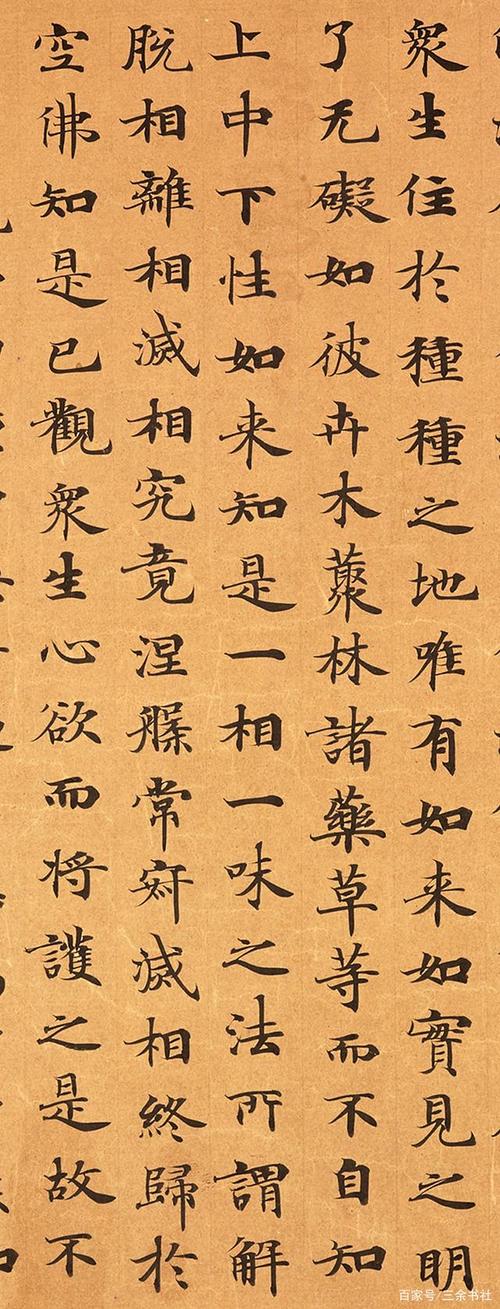 衆生住於種種之地唯有如来如實見之明
了无礙如彼卉木藂林諸藥草等而不自知
上中下性如来知是一相一味之法所謂解
脫相離相滅相究竟涅槃常寂滅相終歸於
空佛知是已觀衆生心欲而將護之是故不
百家号/三余书社